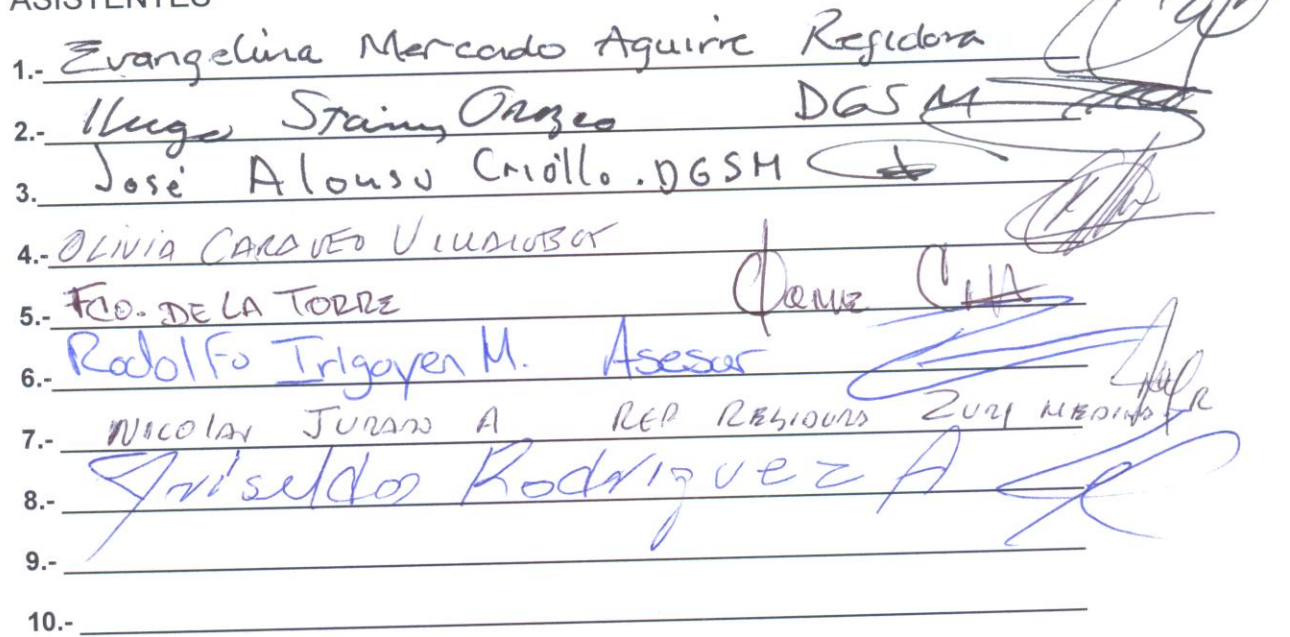 ASISTENTES
1.- Evangelina Mercado Aguirre Regidora
2.- Hugo Orozco DGSM
3. José Alonso Criollo. DGSM
4.- OLIVIA CARAVEO VILLALOBOS
5.- FCO. DE LA TORRE
6.- Rodolfo Irigoyen M. Asesor
7.- NICOLAS JURADO A REP REGIDORA ZURY MEDINA
8.- Griselda Rodriguez A
9.-
10.-